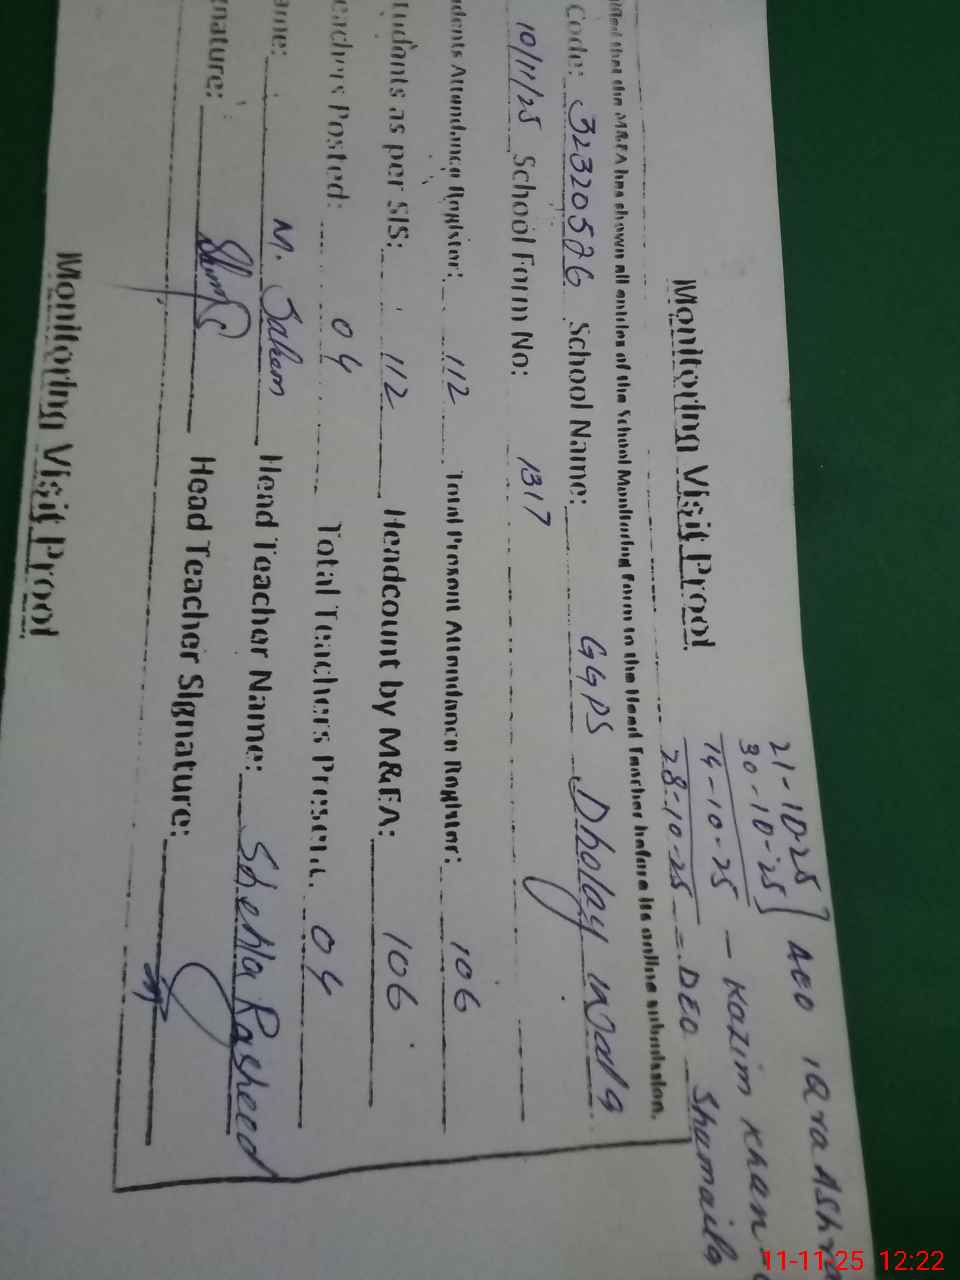 21-10-25
30-10-25 ] AEO IQra Ashr
14-10-25 - Kazim Khan
28-10-25 - DEO Shumaila
Monitoring Visit Proof
that the M&EA has shown all entries of the School Monitoring Form to the Head Teacher before its online submission.
code: 32320576 School Name: GGPS Dholay wala
10/11/25 School Form No: 1317
dents Attendance Register: 112 Total Present Attendance Register: 106
tudents as per SIS: 112 Headcount by M&EA: 106
eachers Posted: 04 Total Teachers Present: 04
ame: M. Head Teacher Name: Shehla Rasheed
gnature: Head Teacher Signature:
Monitoring Visit Proof
11-11-25 12:22